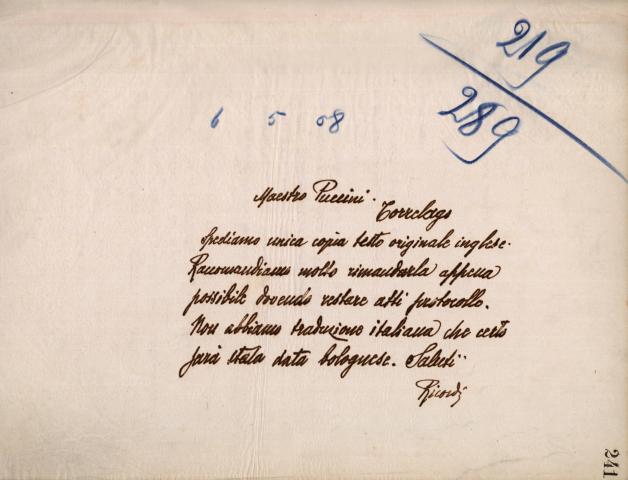 219
289
6 5 08
Maestro Puccini.
Torrelago
Spediamo unica copia testo originale inglese.
Raccomandiamo molto rimandarla appena
possibile dovendo restare atti protocollo.
Non abbiamo traduzione italiana che certo
sarà stata data bolognese. Saluti
Ricordi
241